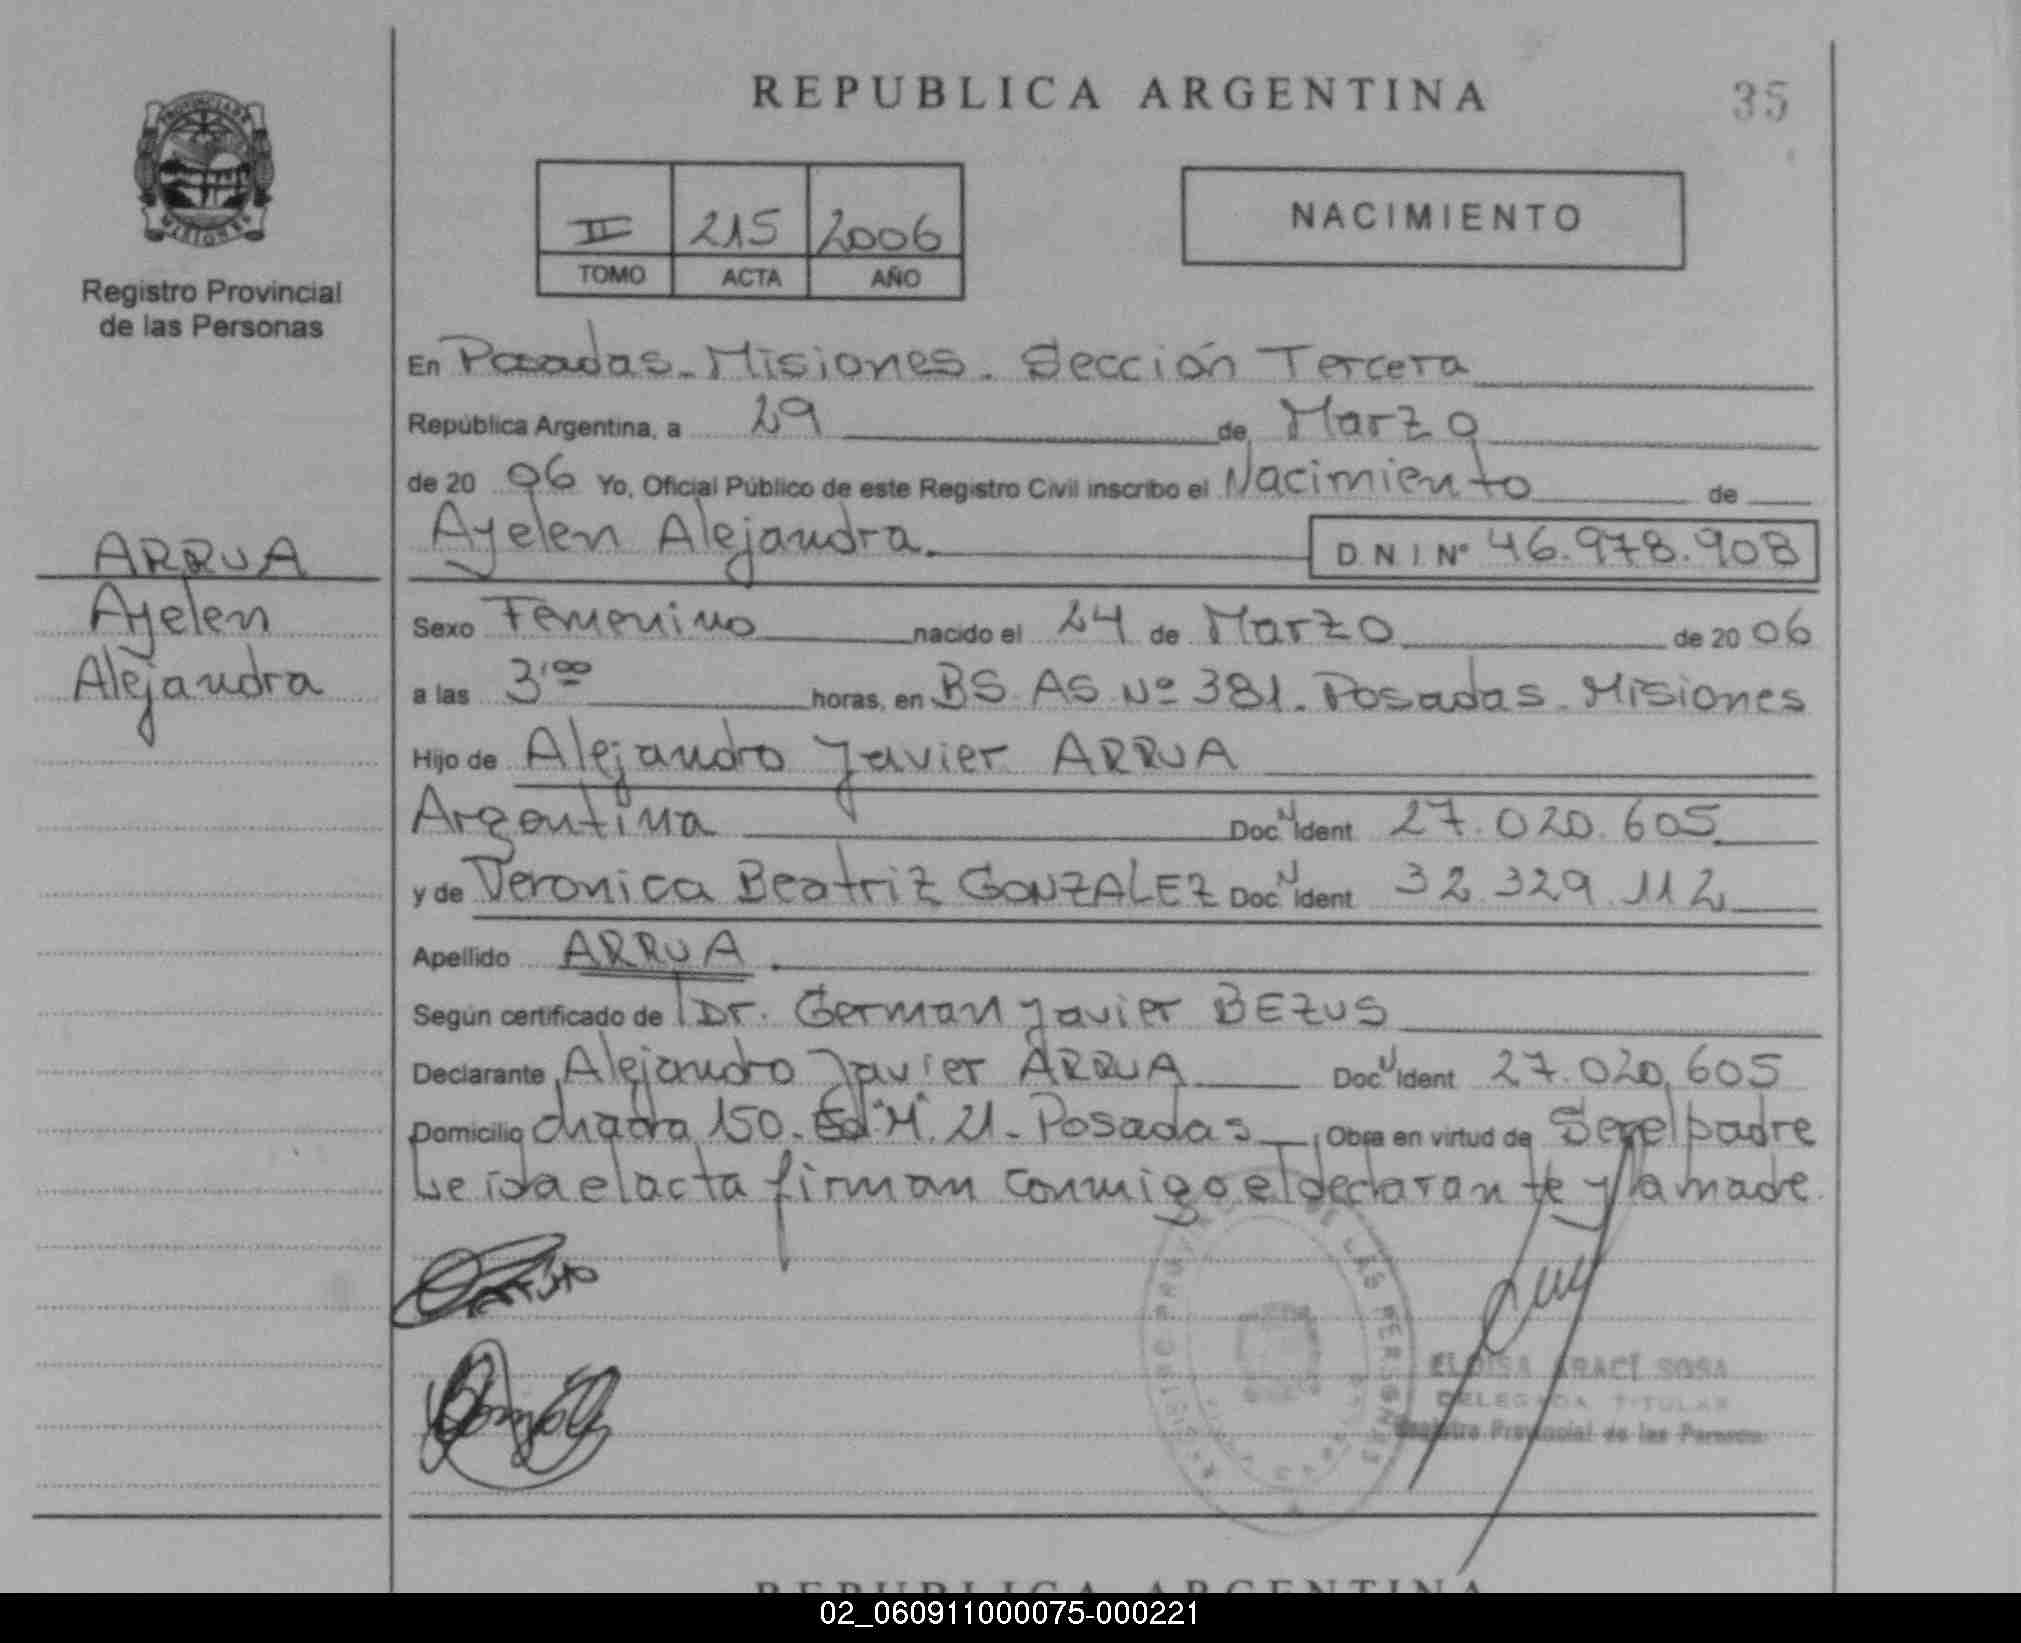 REPUBLICA ARGENTINA
35
PROVINCIA DE
MISIONES
Registro Provincial
de las Personas
II 215 2006
TOMO ACTA AÑO
NACIMIENTO
En Posadas - Misiones. Sección Tercera
República Argentina, a 29 de Marzo
de 20 06 Yo, Oficial Público de este Registro Civil inscribo el Nacimiento de
Ayelen Alejandra. D.N.I. Nº 46.978.908
ARRUA
Ayelen
Alejandra
Sexo Femenino nacido el 24 de Marzo de 20 06
a las 3'00 horas, en BS AS Nº 381. Posadas - Misiones
Hijo de Alejandro Javier ARRUA
Argentina Doc. Ident 27.020.605
y de Veronica Beatriz GONZALEZ Doc. Ident 32.329.112
Apellido ARRUA
Según certificado de Dr. German Javier BEZUS
Declarante Alejandro Javier ARRUA Doc. Ident 27.020.605
Domicilio chacra 150. Ed "M". 21 - Posadas Obra en virtud de Ser el padre
Leida el acta firman conmigo el declarante y la madre.
ELOISA ARACÍ SOSA
DELEGADA TITULAR
Registro Provincial de las Personas
REPUBLICA ARGENTINA
02_060911000075-000221